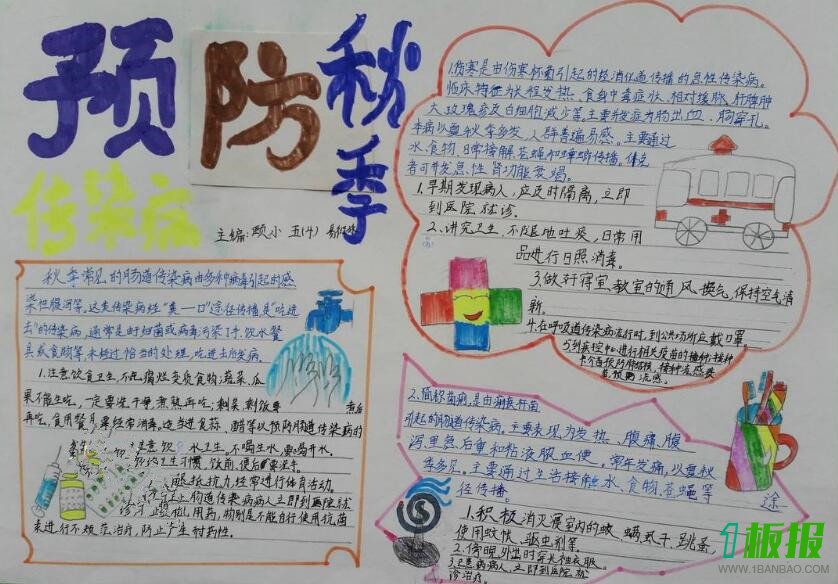 预防秋季
传染病
主编：顾小 五(4) 易
秋季常见的肠道传染病由多种病毒引起的感
染性腹泻等。这类传染病经“粪—口”途径传播,是“吃进
去”的传染病。通常是虾细菌或病毒污染了手、饮水餐
具或食物等,未经过恰当的处理,吃进去后发病。
1.注意饮食卫生,不吃腐烂变质食物;蔬菜、瓜
果不能生吃,一定要洗干净,煮熟再吃;剩菜剩饭要 煮后
再吃,食用餐具要经常消毒,适当进食蒜、醋等以预防肠道传染病的
注意饮 水卫生,不喝生水,要喝开水。
卫生习惯,饮前、便后 要洗手。
抵抗力,经常进行体育活动。
肠道传染病病人立即到医院就
用药,物别是不能自行使用抗菌
来进行不规范治疗,防止产生耐药性。
1.伤寒是由伤寒杆菌引起的经消化道传播的急性传染病。
临床特征 发热、食身中毒症状、相对缓脉、肝脾肿
大、玫瑰疹及白细胞减少等。主要并发症为肠出血、肠穿孔。
本病以夏秋季多发,人群普遍易感。主要通过
水、食物、日常接触、苍蝇和蟑螂传播。
者可并发急性肾功能衰竭。
1.早期发现病人,应及时隔离,立即
到医院就诊。
2.讲究卫生,不随地吐痰,日常用
品进行日照消毒。
3.做好寝室、教室的通风换气,保持空气清
新。
4.在呼吸道传染病流行时,到公共场所应戴口罩。
5.到疾控中心进行相关疫苗的接种,接种
2.简称菌痢,是由痢疾杆菌
引起的肠道传染病,主要表现为发热、腹痛、腹
泻里急后重和粘液脓血便,常年发病,以夏秋
季多见。主要通过生活接触、水、食物、苍蝇等 途
径传播。
1.积极消灭居室内的蚊、螨虱干、跳蚤,
使用蚊帐、驱虫剂等。
2.傍晚外出时穿长袖衣服。
病人,立即到医院就
诊治疗。
1板报
WWW.1BANBAO.COM